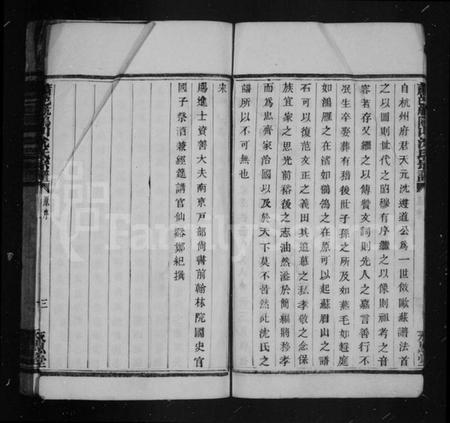 自杭州府君天元沈遵道公為一世倣歐蘇譜法首
之以圖則世代之昭穆有序繼之以像則祖考之音
容若存又繼之以傳贊文詞則先人之嘉言善行不
泯生卒娶葬有稽後世子孫之所及如燕毛如趨庭
如鴻雁之在渚如鶺鴒之在原可以起蘇眉山之譜
石可以復范文正之義田其追慕之私孝敬之念保
族宜家之思光前裕後之志油然溢於簡編將移孝
而為忠齊家治國以及於天下莫不皆然此沈氏之
譜所以不可無也
賜進士資善大夫南京戶部尚書前翰林院國史官
國子祭酒兼經筵講官仙谿鄭紀撰
三